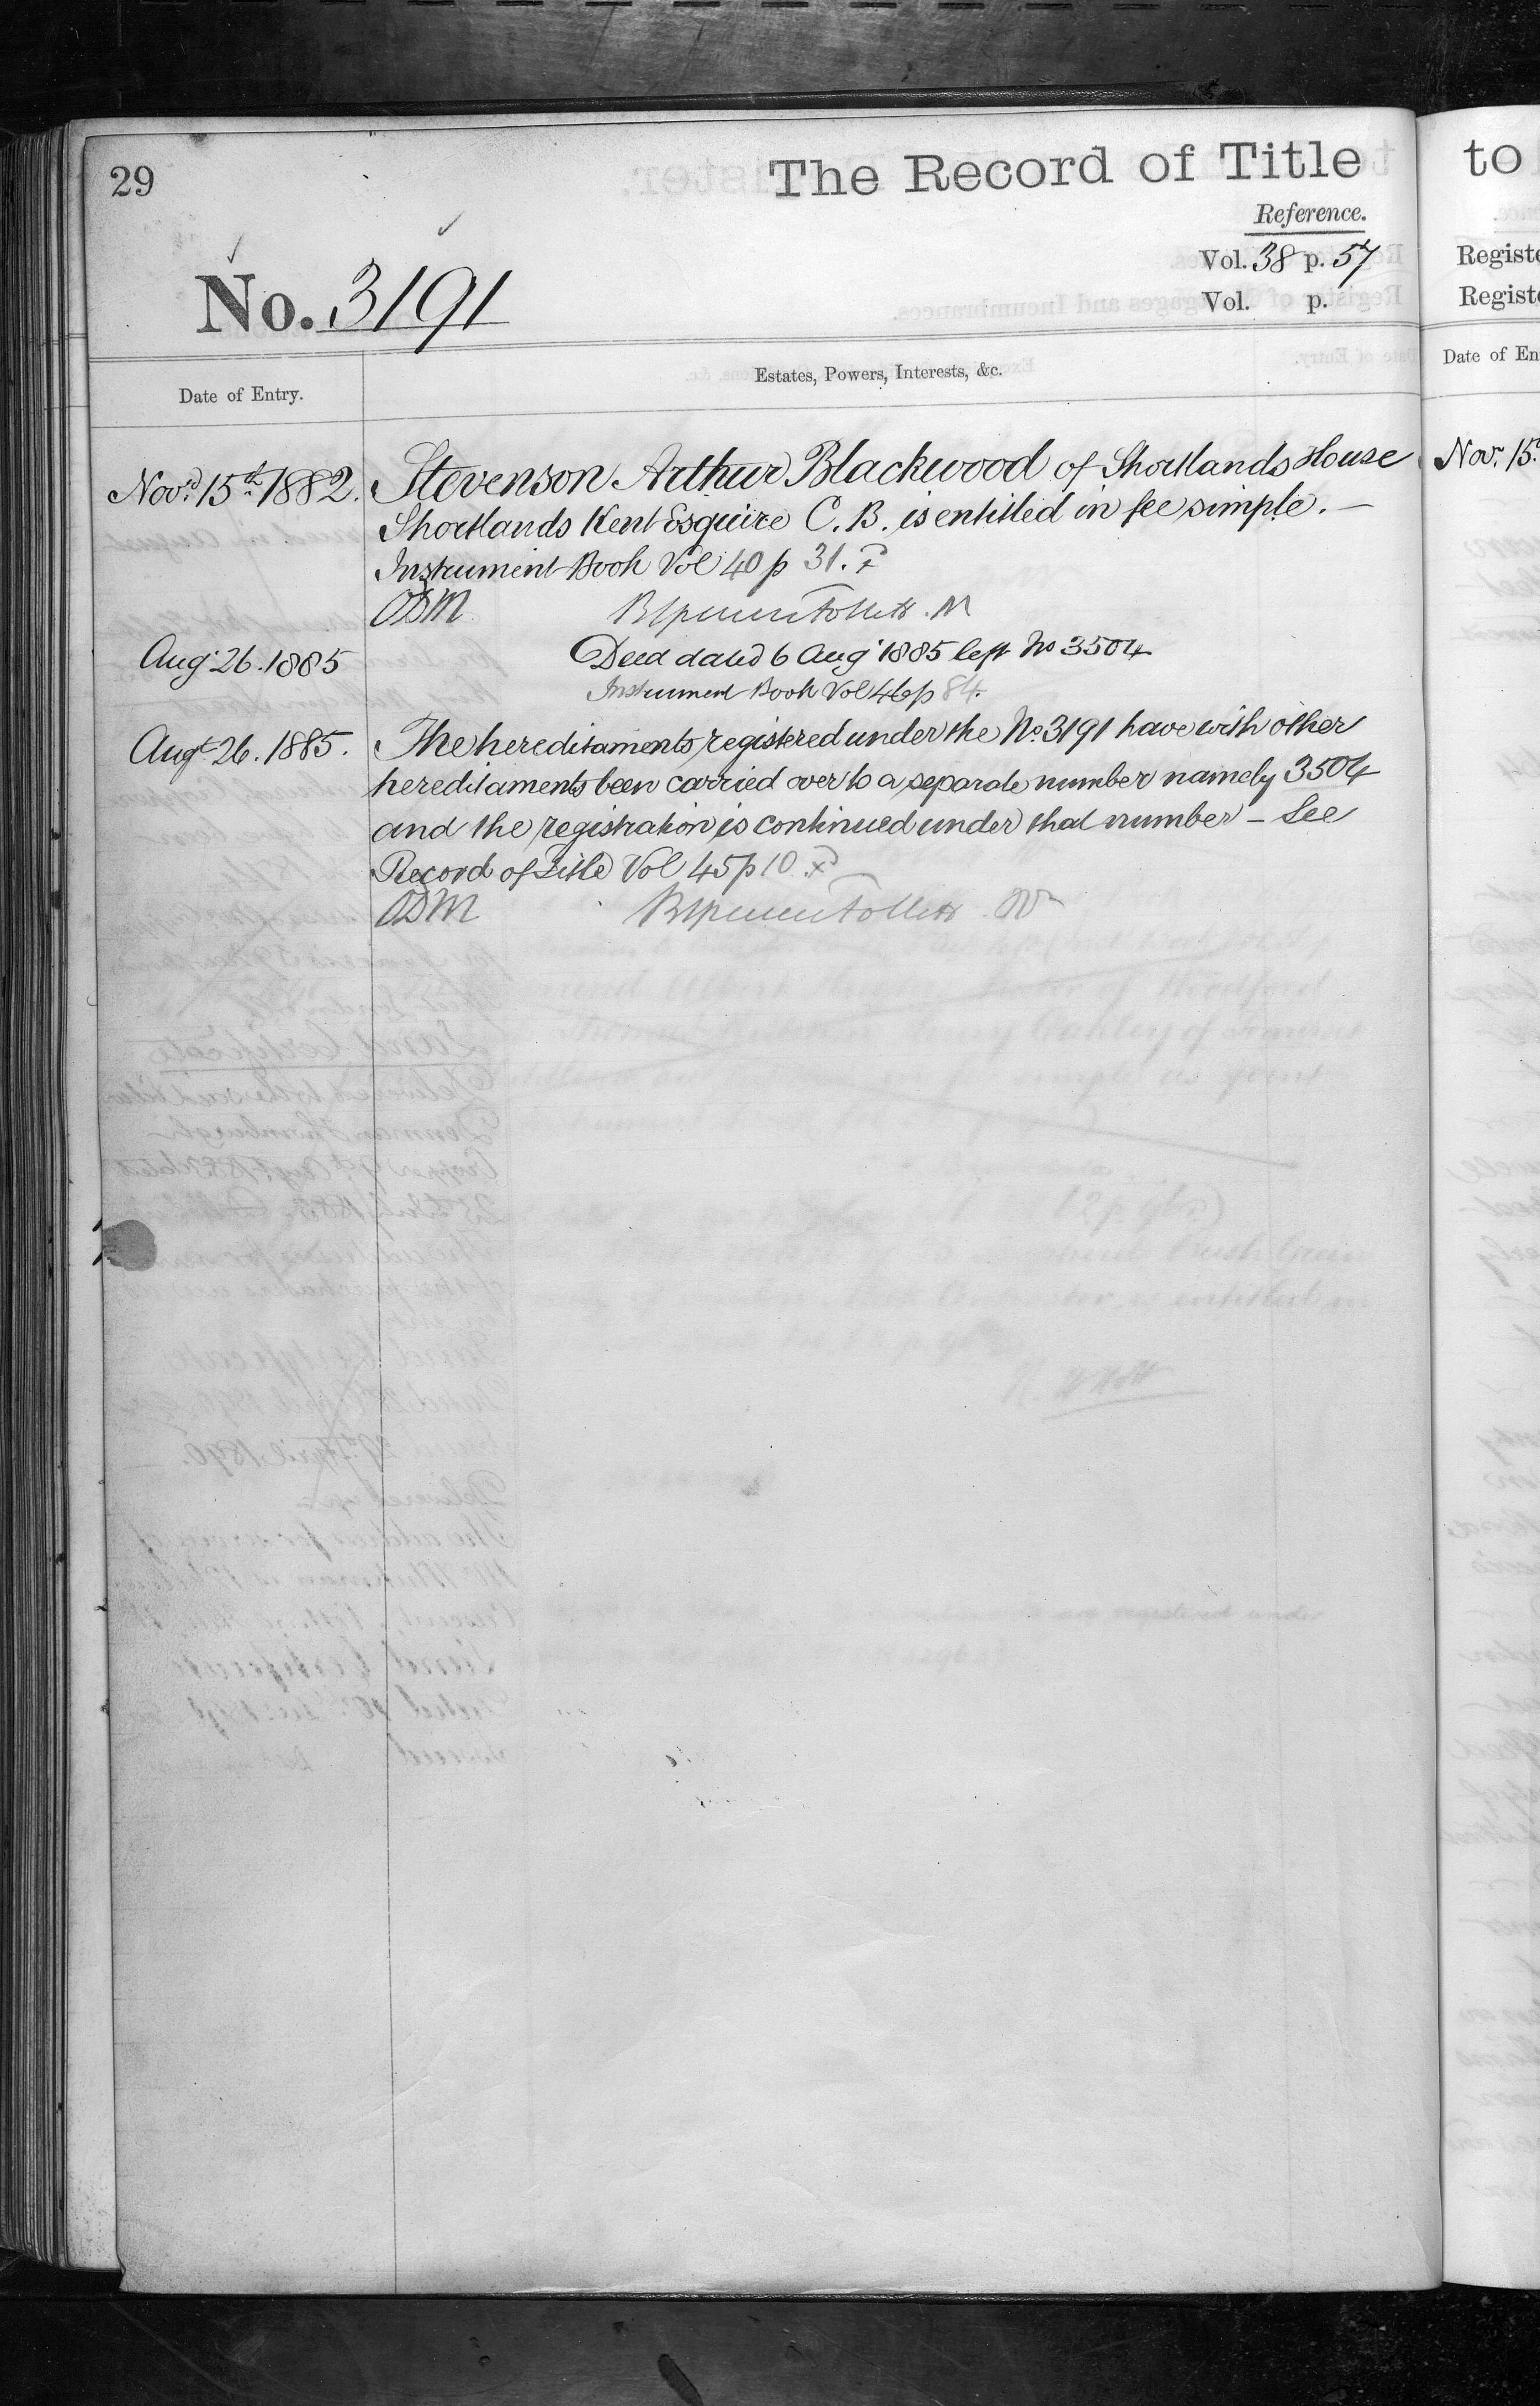 29
The Record of Title
Reference.
Vol. 38 p. 57
Vol. p.
No. 3191
Date of Entry.
Estates, Powers, Interests, &c.
Novr. 15th 1882. Stevenson Arthur Blackwood of Shortlands House
Shortlands Kent Esquire C. B. is entitled in fee simple. —
Instrument Book Vol 40 p 31.
ODM
Aug. 26. 1885 Deed dated 6 Aug 1885 left No 3504
Instrument Book Vol 46 p 84.
Augt 26. 1885. The hereditaments registered under the No. 3191 have with other
hereditaments been carried over to a separate number namely 3504
and the registration is continued under that number – See
Record of Title Vol 45 p 10
ODM
to
Registe
Registe
Date of En
Novr. 15t